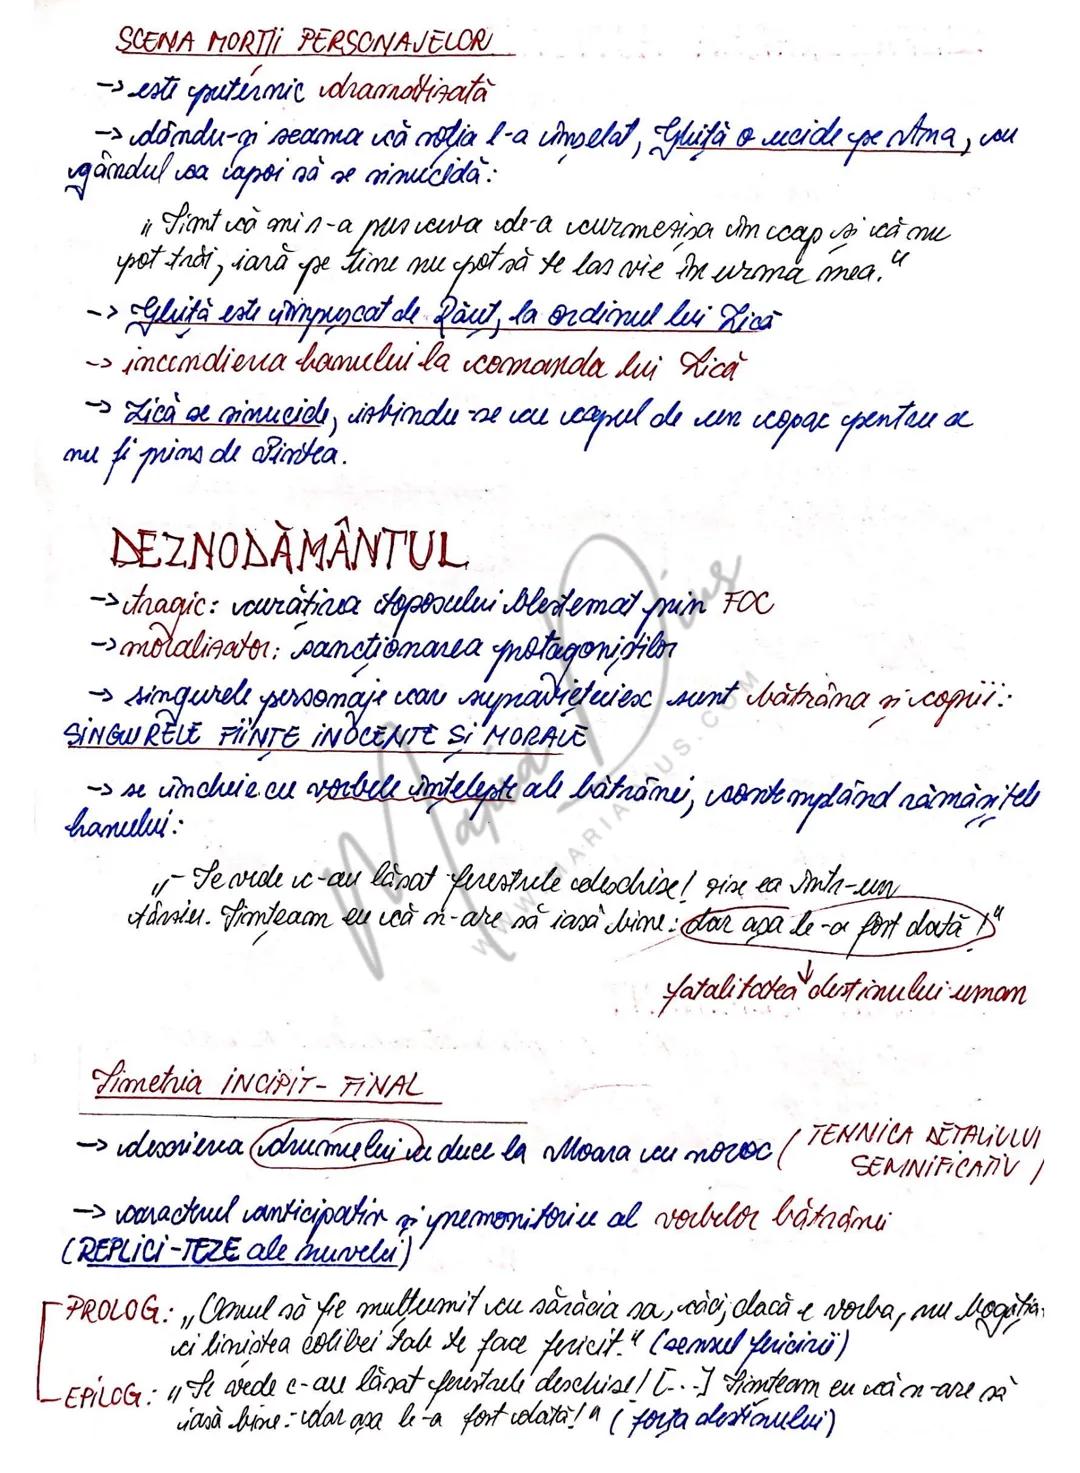 SCENA MORȚII PERSONAJELOR
→ este puternic dramatizată
→ dându-și seama că soția l-a înșelat, Ghiță o ucide pe Ana, cu
gândul ca apoi să se sinucidă:
„Simt că mi s-a pus ceva de-a curmezișa în cap și că nu
pot trăi, iară pe tine nu pot să te las vie în urma mea."
→ Ghiță este împușcat de Răuț, la ordinul lui Lică
→ incendierea hanului la comanda lui Lică
→ Lică se sinucide, izbindu-se cu capul de un copac pentru a
nu fi prins de Pintea.
DEZNODĂMÂNTUL
→ tragic: curățirea toposului blestemat prin FOC
→ moralizator: sancționarea protagoniștilor
→ singurele personaje care supraviețuiesc sunt bătrâna și copiii:
SINGURELE FIINȚE INOCENTE ȘI MORALE
→ se încheie cu vorbele înțelepte ale bătrânei, contemplând rămășițele
hanului:
„- Se vede c-au lăsat ferestrele deschise! zise ea într-un
târziu. Simțeam eu că n-are să iasă bine: dar așa le-a fost dată!"
fatalitatea destinului uman
Simetria INCIPIT - FINAL
→ descrierea drumului ce duce la Moara cu noroc (TEHNICA DETALIULUI
SEMNIFICATIV)
→ caracterul anticipativ și premonitoriu al vorbelor bătrânei
(REPLICI-TEZE ale nuvelei)
PROLOG: „Omul să fie mulțumit cu sărăcia sa, căci, dacă e vorba, nu bogăția,
ci liniștea colibei tale te face fericit." (sensul fericirii)
EPILOG: „Se vede c-au lăsat ferestrele deschise! [...] Simțeam eu că n-are să
iasă bine: dar așa le-a fost dată!" (forța destinului)
Maria Dius
WWW.MARIADIUS.COM